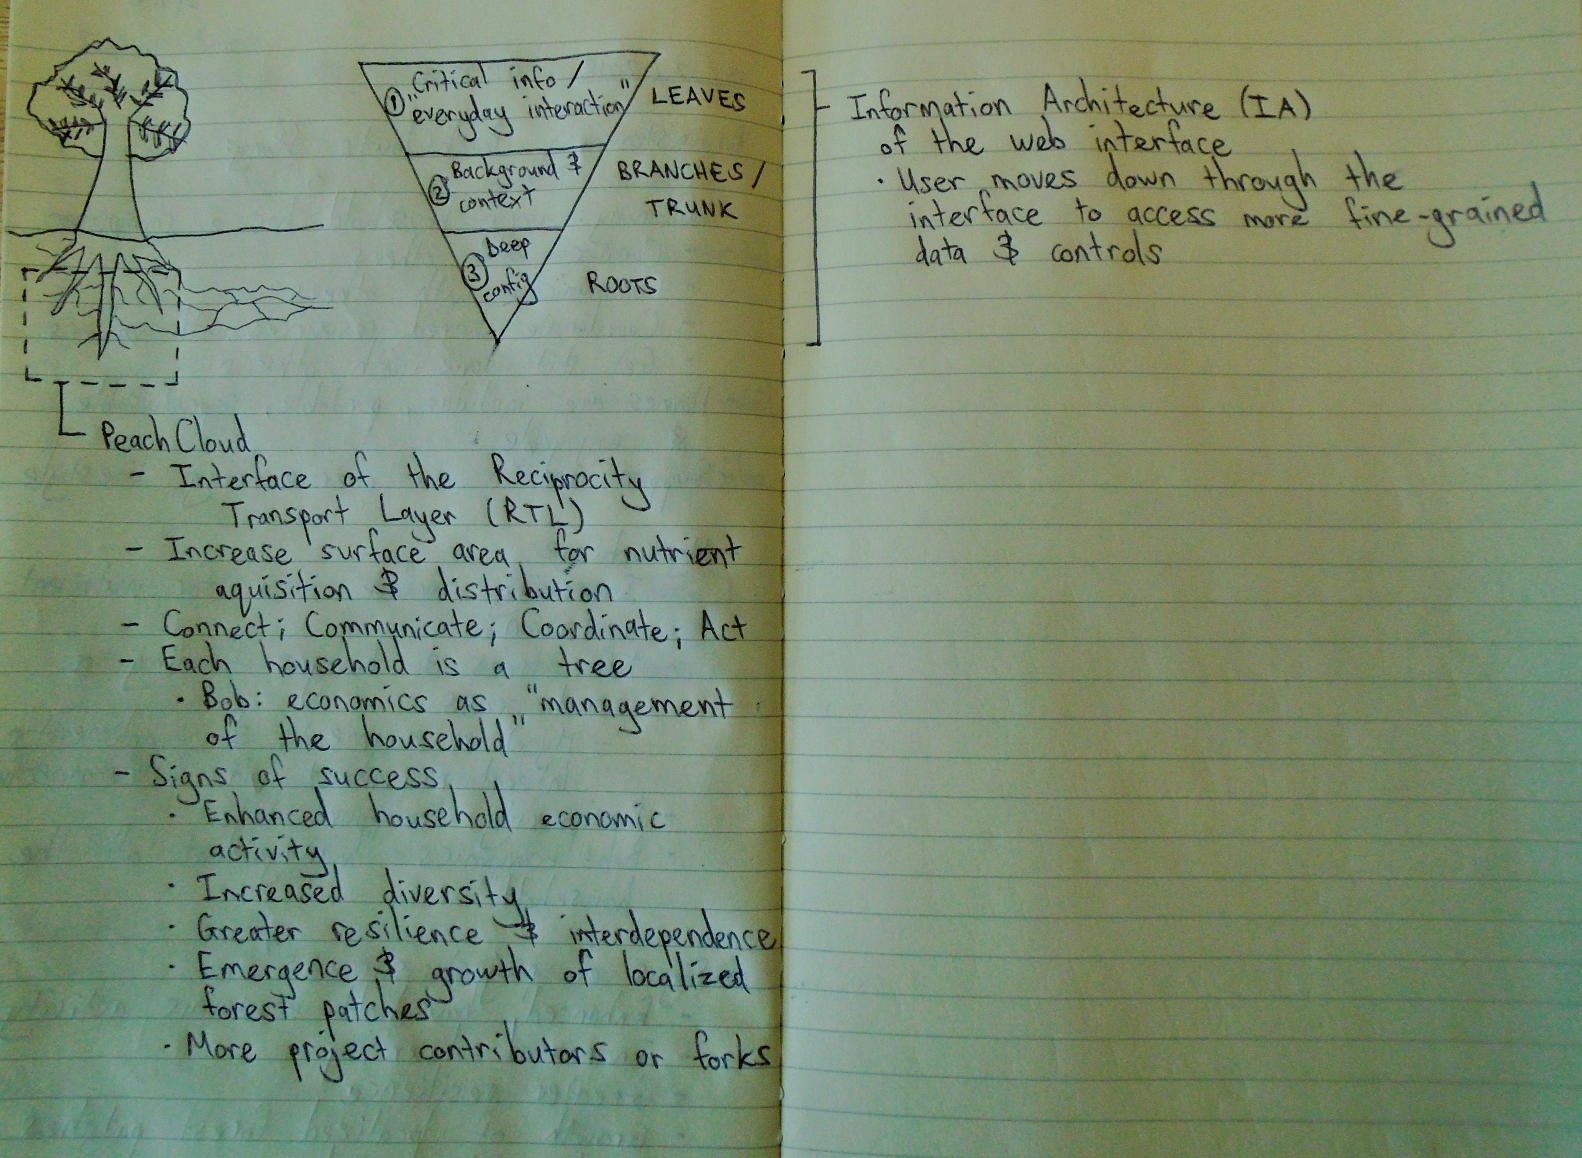 ① Critical info /
"everyday interaction"
LEAVES
② Background &
context
BRANCHES /
TRUNK
③ Deep
config
ROOTS
PeachCloud
- Interface of the Reciprocity
Transport Layer (RTL)
- Increase surface area for nutrient
aquisition & distribution
- Connect; Communicate; Coordinate; Act
- Each household is a tree
· Bob: economics as "management
of the household"
- Signs of success
· Enhanced household economic
activity
· Increased diversity
· Greater resilience & interdependence
· Emergence & growth of localized
forest patches
· More project contributors or forks
Information Architecture (IA)
of the web interface
· User moves down through the
interface to access more fine-grained
data & controls